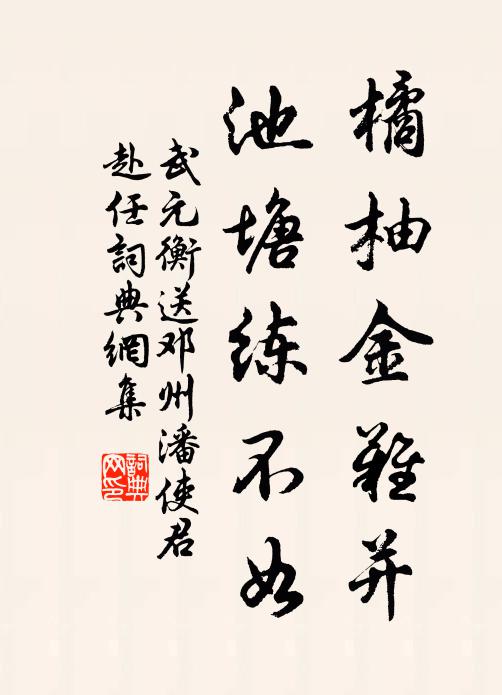 橘柚金難并
池塘练不如
武元衡送邓州潘使君
赴任詞典網集
詞典
网印